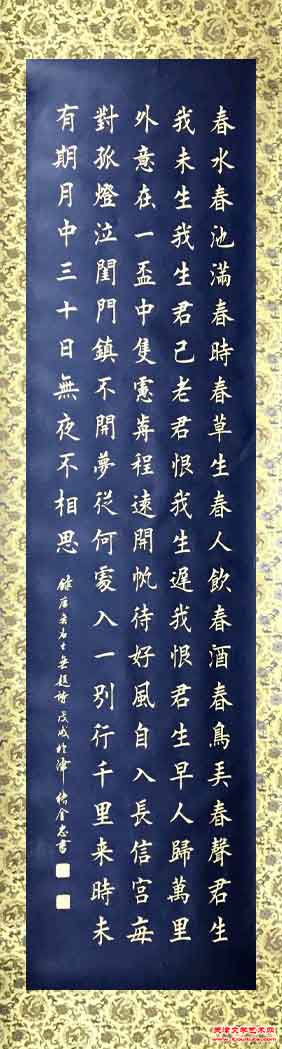 春水春池滿春時春草生春人飲春酒春鳥弄春聲君生
我未生我生君已老君恨我生遲我恨君生早人歸萬里
外意在一盃中隻慮前程遠開帆待好風自入長信宮每
對孤燈泣閨門鎮不開夢從何處入一別行千里来時未
有期月中三十日無夜不相思
錄唐無名士無題詩 戊戌於津 金忠書
天津文学艺术网